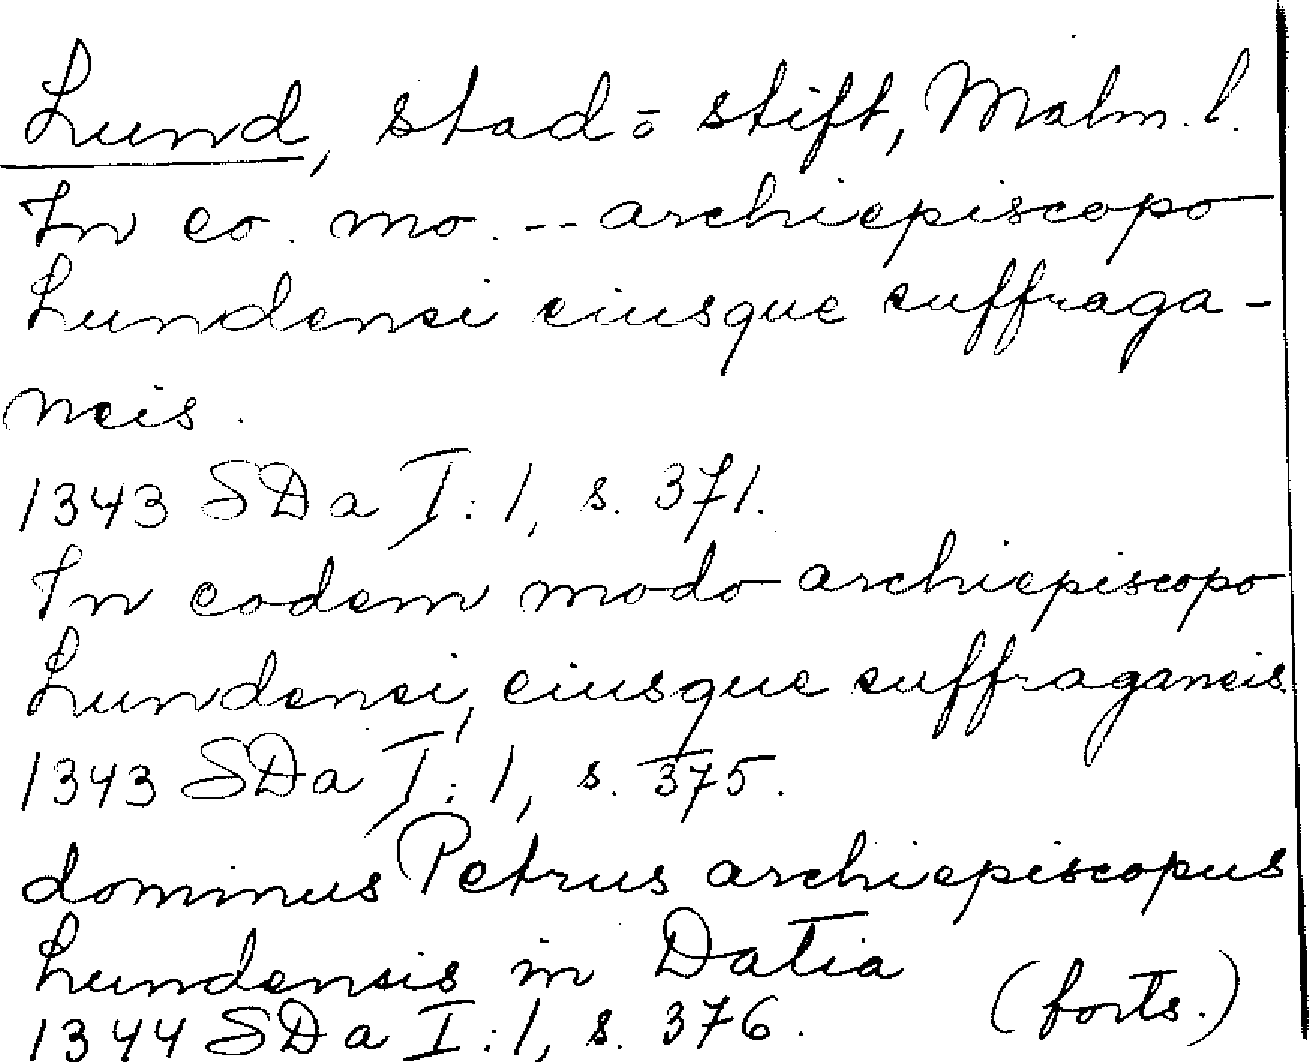 Lund, stad o stift, Malm. l.
In eo. mo. -- archiepiscopo
Lundensi eiusque suffraga-
neis.
1343 SDa I:1, s. 371.
In eodem modo archiepiscopo
Lundensi, eiusque suffraganeis.
1343 SDa I:1, s. 375.
dominus Petrus archiepiscopus
Lundensis in Datia
(forts.)
1344 SDa I:1, s. 376.